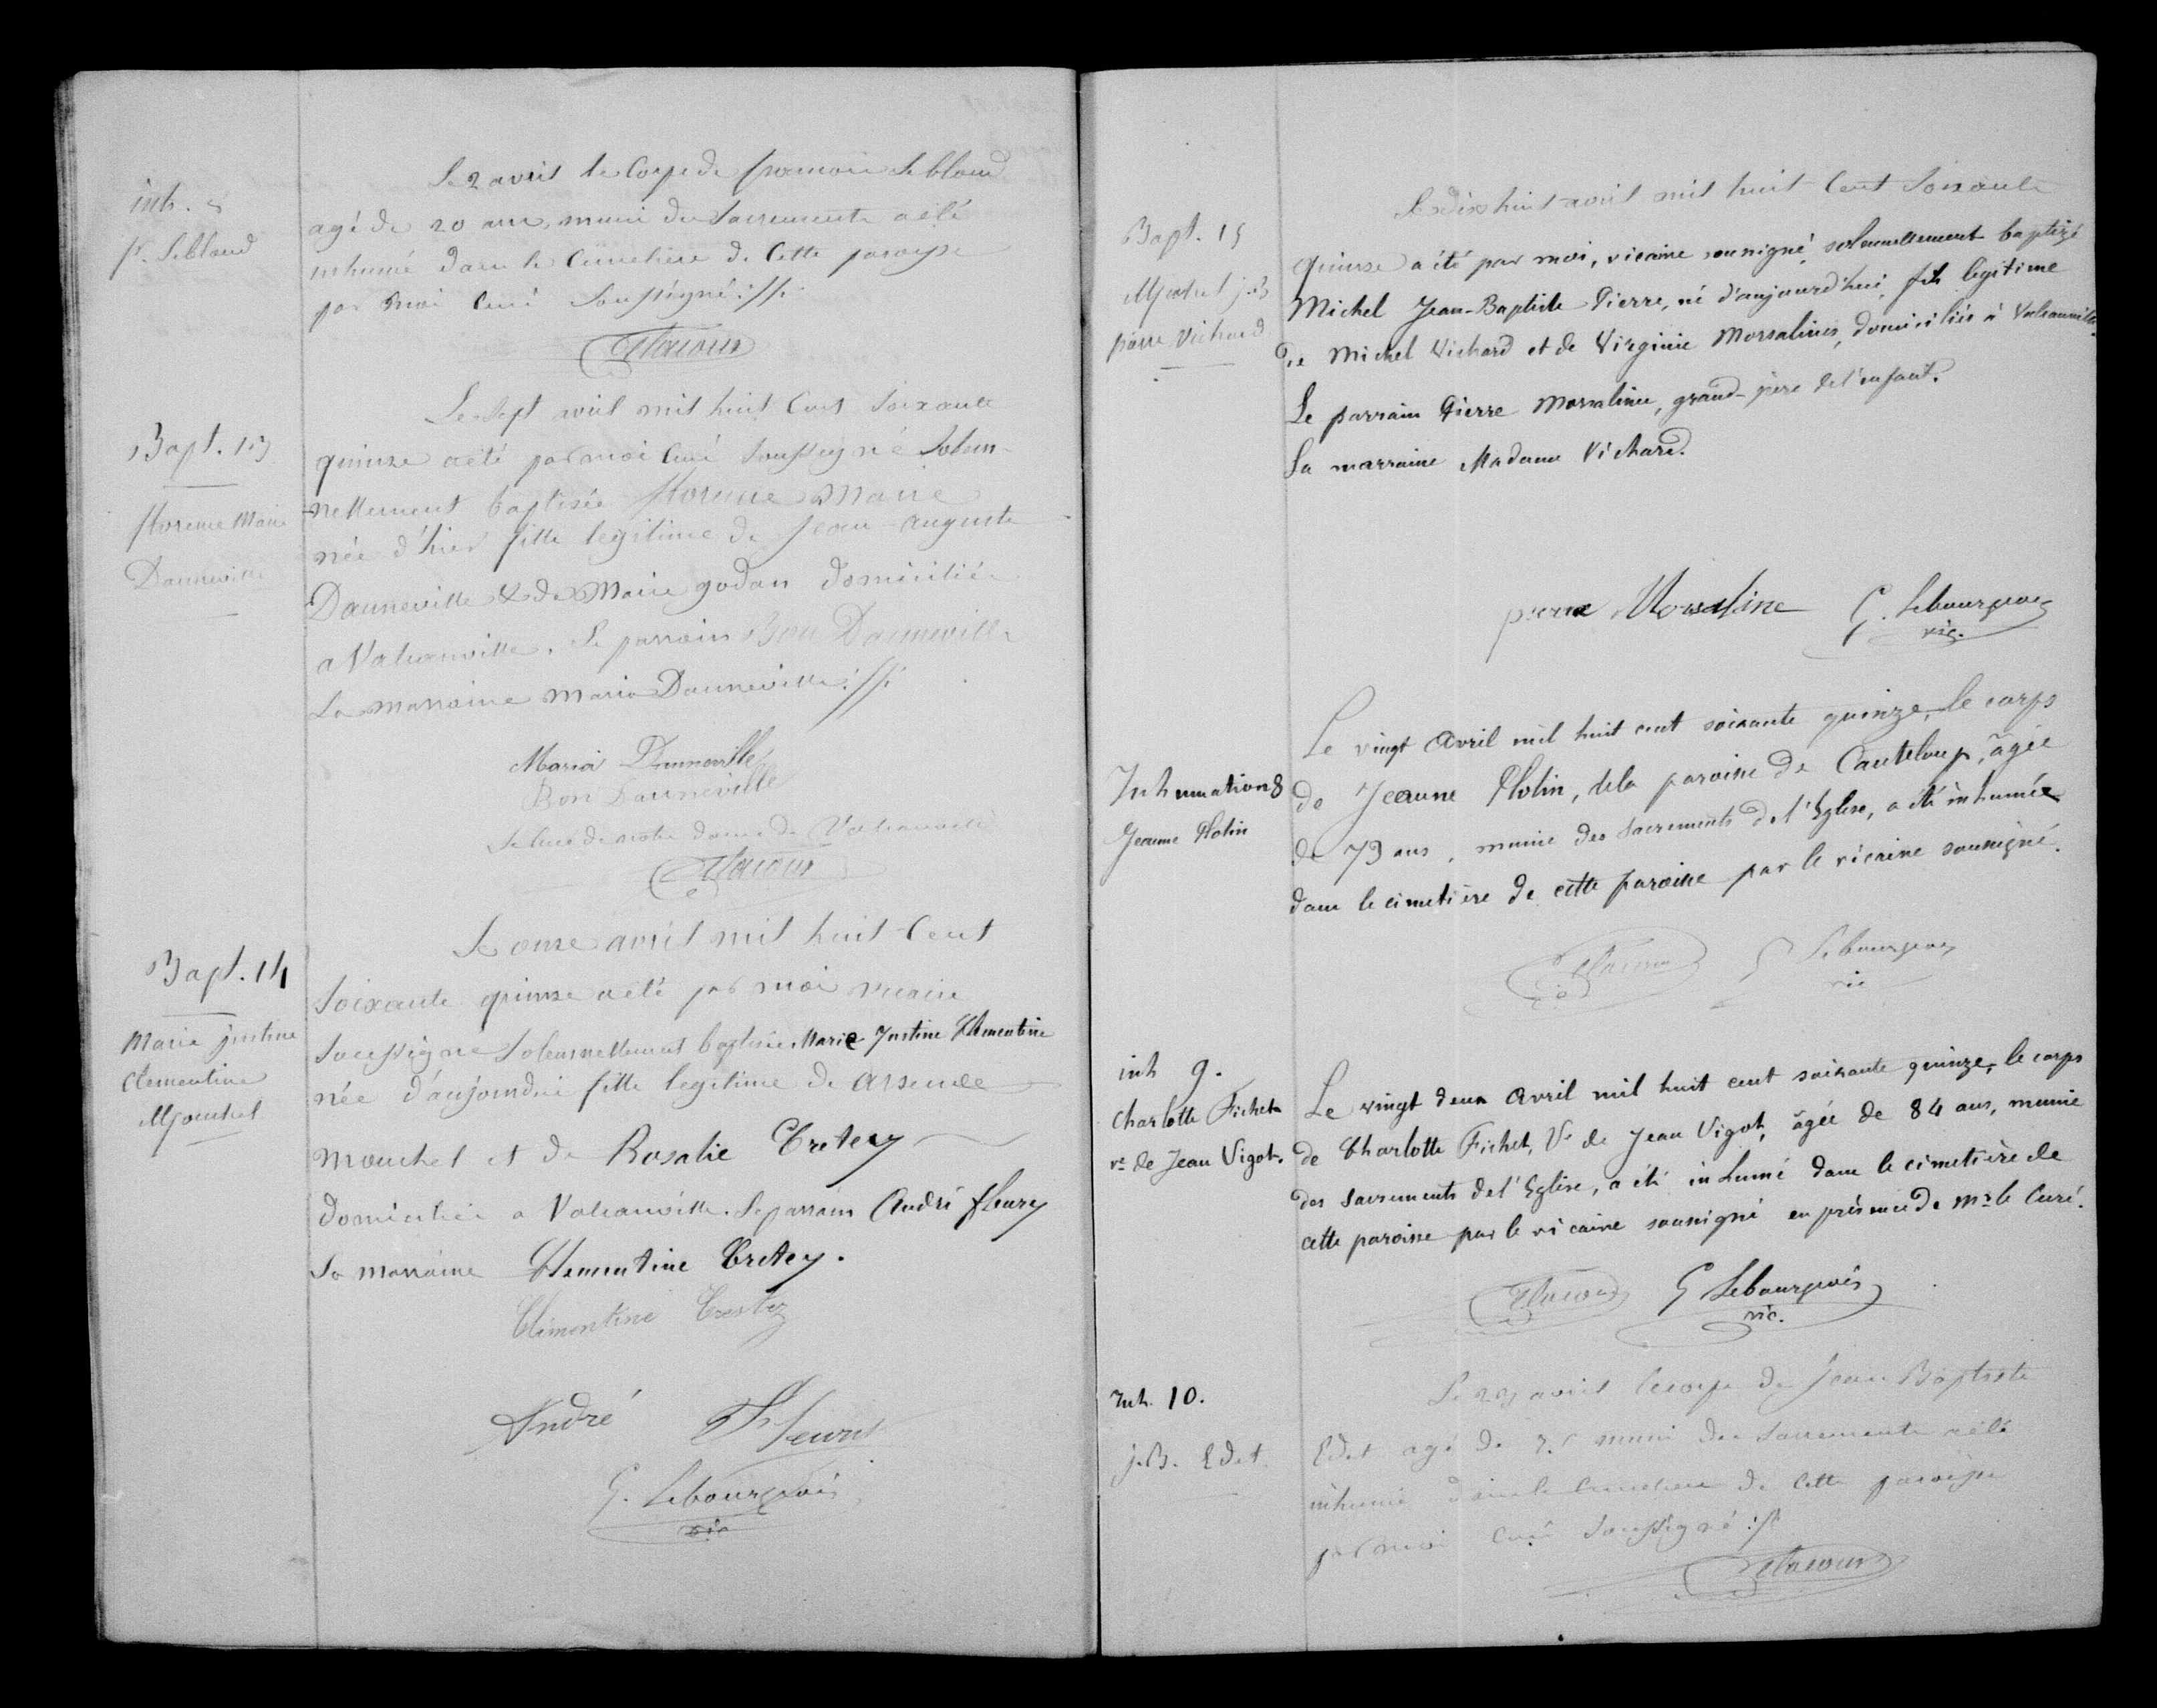 inh.
f. Leblond
Le 2 avril le Corps de françois Leblond
agé de 20 ans, muni des Sacrements a été
inhumé dans le Cimetière de Cette paroisse
par moi Curé Soussigné ://:
Bapt. 13
florence Marie
Danneville
Le Sept avril mil huit Cent Soixante
quinze a été par moi Curé Soussigné Solen-
nellement baptisée florence Marie
née d'hier fille legitime de Jean auguste
Danneville & de Marie godan domiciliés
a Valcanville. Le parrain Bon Danneville
La marraine Maria Danneville ://:
Maria Danneville
Bon Danneville
Le Curé de notre dame de Valcanville
Bapt. 14
Marie justine
Clementine
Mouchel
Le onze avril mil huit Cent
Soixante quinze a été par moi vicaire
Soussigné Solennellement baptisée Marie Justine Clementine
née d'aujourdui fille legitime de arsene
Mouchel et de Rosalie Cretey
domiciliés a Valcanville. Le parrain André fleury
La marraine Clementine Cretey.
Clémentine Crestey
André Fleury
G. Lebourgeois
vic
Bapt. 15
Michel j.B
pierre Vichard
Le dix huit avril mil huit Cent Soixante
quinze a été par moi, vicaire soussigné, solennellement baptizé
Michel Jean-Baptiste Pierre, né d'aujourd'hui, fils légitime
de Michel Vichard et de Virginie Morsalines, domiciliés à Valcanville.
Le parrain Pierre Morsaline, grand-père de l'enfant.
La marraine Madame Vichard.
pierre Morsaline G. Lebourgeois
vic.
Inhumation 8
Jeanne Holin
Le vingt Avril mil huit cent soixante quinze, le corps
de Jeanne Holin, de la paroisse de Canteloup, âgée
de 79 ans, munie des Sacrements de l'Eglise, a été inhumée
dans le cimetière de cette paroisse par le vicaire soussigné.
G Lebourgeois
vic
inh 9.
Charlotte Fichet
ve de Jean Vigot.
Le vingt deux Avril mil huit cent soixante quinze, le corps
de Charlotte Fichet, Ve de Jean Vigot, âgée de 84 ans, munie
des Sacrements de l'Eglise, a été inhumé dans le cimetière de
cette paroisse par le vicaire soussigné en présence de Mr le Curé.
G Lebourgeois
vic.
Inh. 10.
J.B. Edet.
avril le corps de Jean Baptiste
Edet agé de muni des Sacrements a été
inhumé dans le Cimetiere de Cette paroisse
par moi Curé Soussigné ://